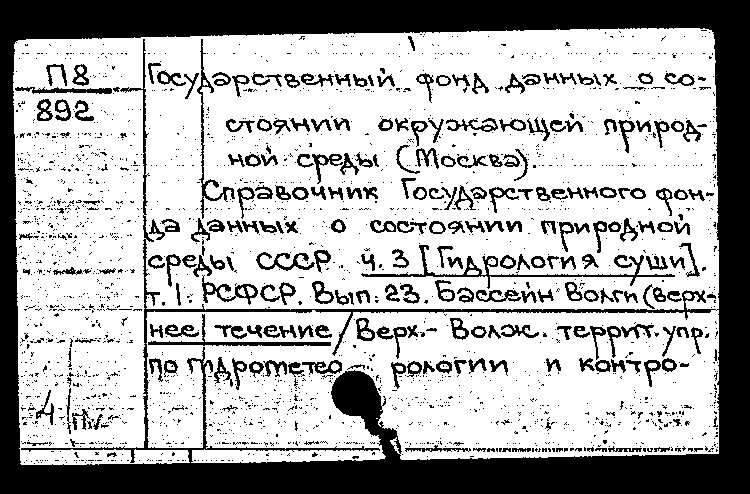 П8
892
Государственный фонд данных о со-
стоянии окружающей природ-
ной среды (Москва).
Справочник Государственного фон-
да данных о состоянии природной
среды СССР ч. 3 [Гидрология суши].
т. 1. РСФСР. Вып. 23. Бассейн Волги (верх-
нее течение / Верх.- Волж. террит. упр.
по гидрометео рологии и контро-
4